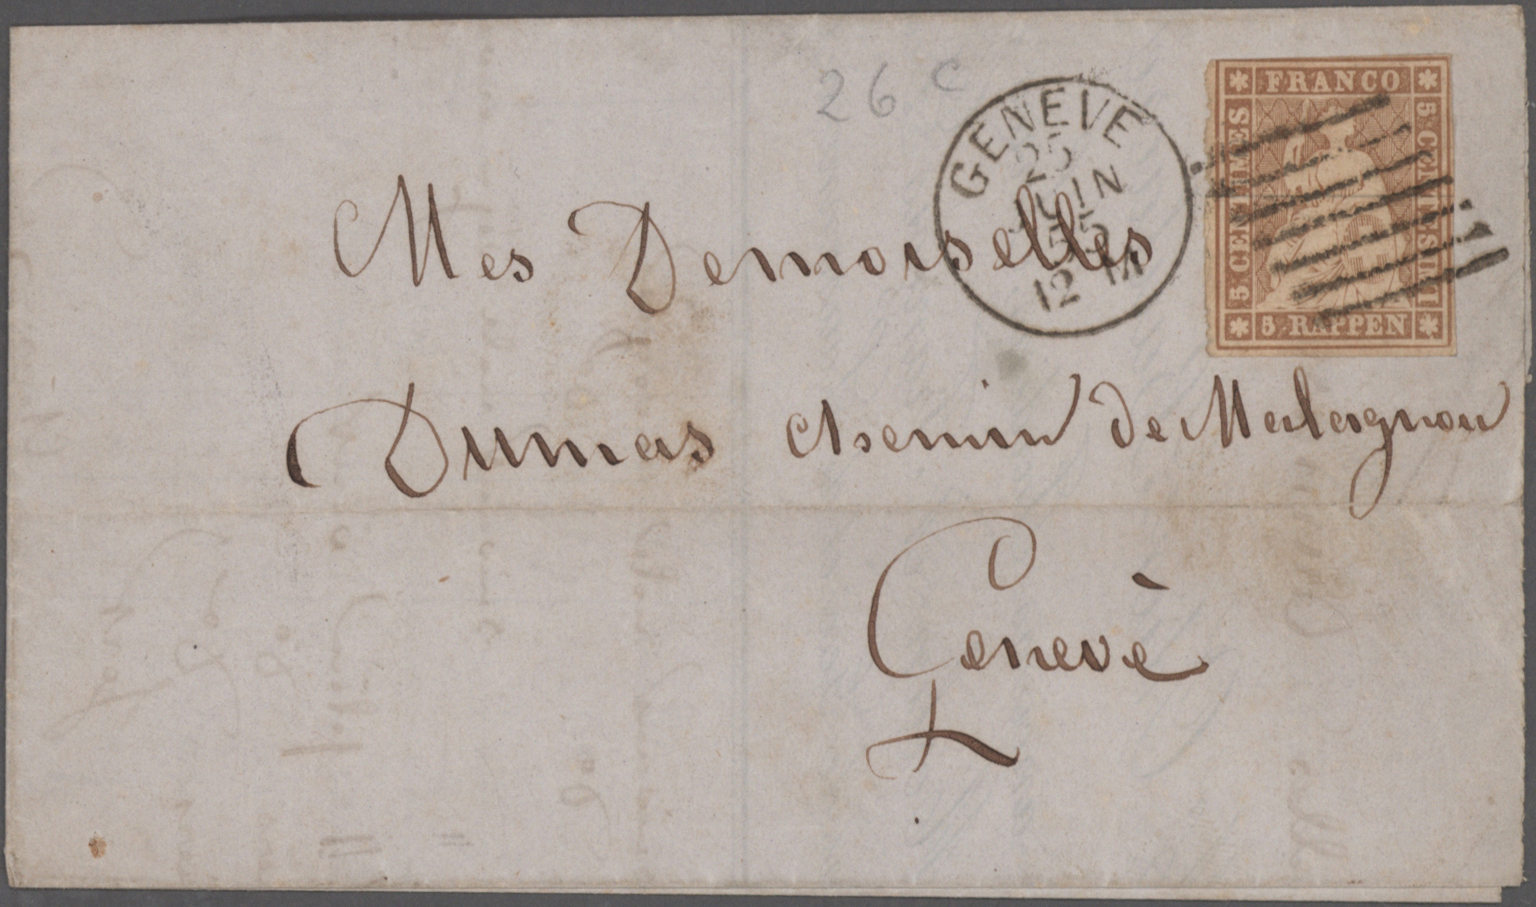 26 C
GENEVE
25
JUIN
55
12 M
FRANCO
5 CENTIMES
5 CENTESIMI
5 RAPPEN
Mes Demoiselles
Dumas Chemin de Malagnou
Genevè